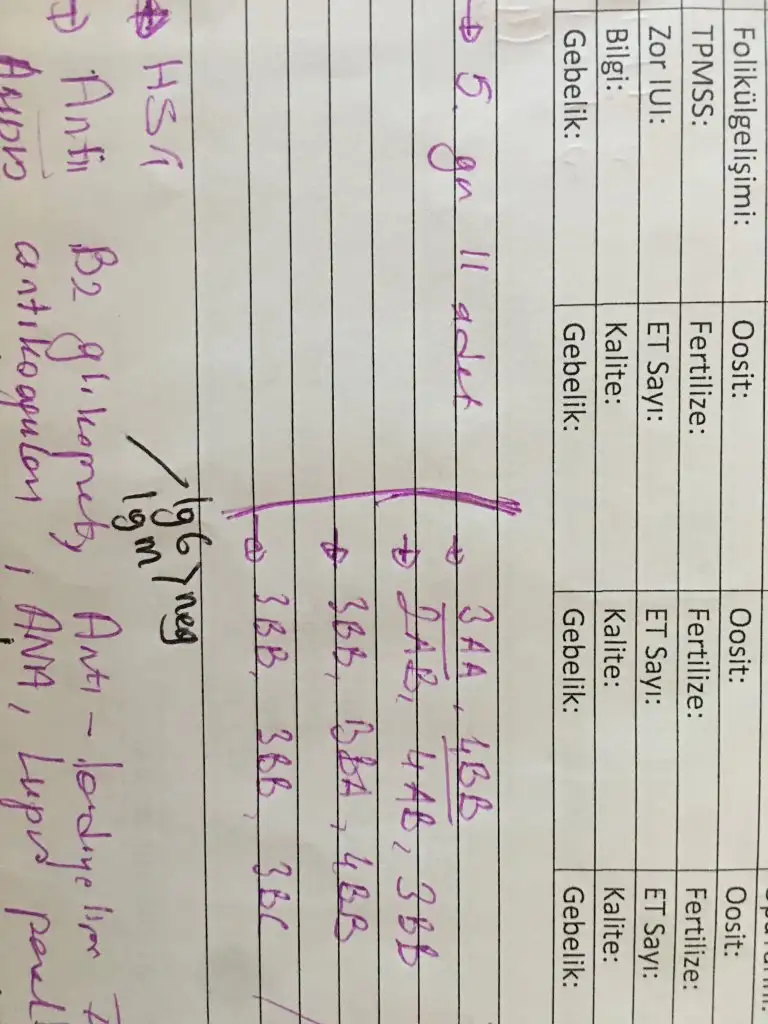 Folikülgelişimi: Oosit: Oosit: Oosit:
TPMSS: Fertilize: Fertilize: Fertilize:
Zor IUI: ET Sayı: ET Sayı: ET Sayı:
Bilgi: Kalite: Kalite: Kalite:
Gebelik: Gebelik: Gebelik: Gebelik:
→ 5. gn 11 adet → 3AA, 4BB
→ 2AB, 4AB, 3BB
→ 3BB, 3BA, 4BB
→ 3BB, 3BB, 3BC
IgG
IgM > neg
→ HSG
→ Anti B2 glikoprotein, Anti-kardiyolipin
antikoagulan, ANA, Lupus panel